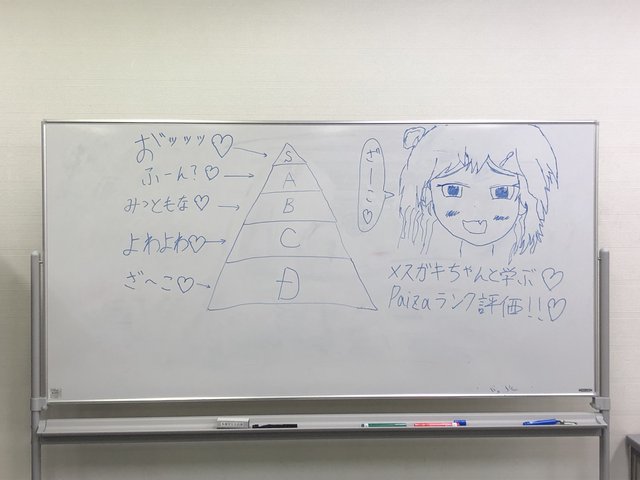 お゛ッッッ♡
S
ふーん?♡
A
みっともな♡
B
よわよわ♡
C
ざ〜こ♡
D
ざーこ♡
メスガキちゃんと学ぶ♡
Paizaランク評価!!♡